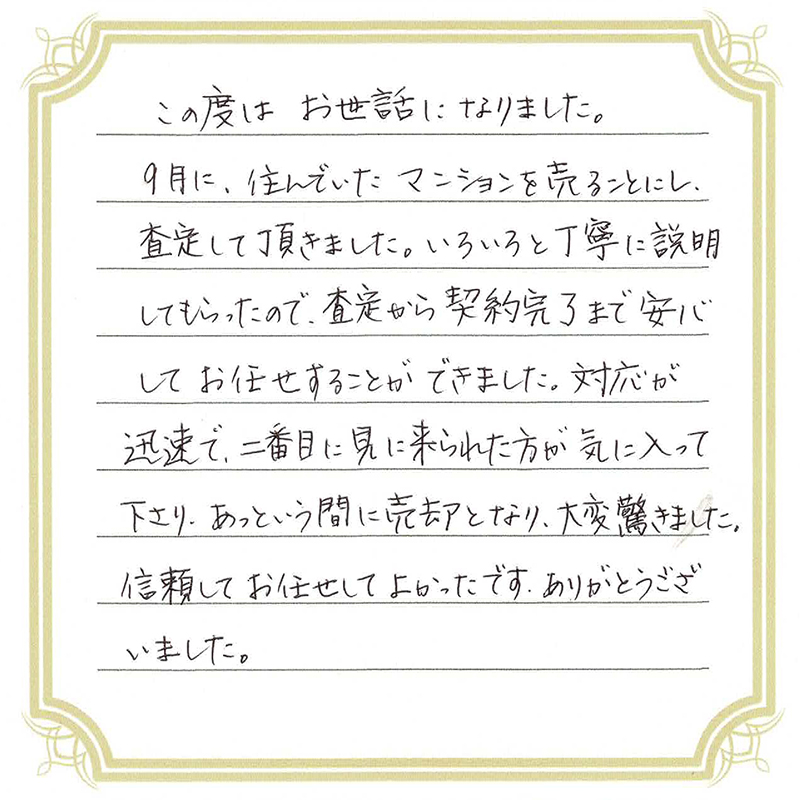 この度は お世話になりました。
9月に、住んでいた マンションを売ることにし、
査定して頂きました。いろいろと丁寧に説明
してもらったので、査定から契約完了まで安心
して お任せすることが できました。対応が
迅速で、二番目に見に来られた方が 気に入って
下さり、あっという間に売却となり、大変驚きました。
信頼して お任せして よかったです。ありがとうござ
いました。